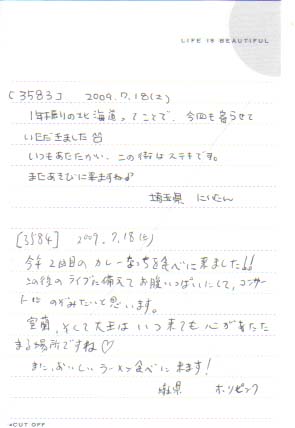 LIFE IS BEAUTIFUL
[3583] 2009.7.18(土)
1年振りの北海道ってことで、今回も寄らせて
いただきました
いつもあたたかい、この街はステキです。
またあそびに来ますね♪
埼玉県 にいたん
[3584] 2009.7.18(土)
今年2回目のカレーなっちを食べに来ました!!
この後のライブに備えてお腹いっぱいにして、コンサー
トに のぞみたいと思います。
室蘭、そして大王は いつ来ても 心があたた
まる場所ですね♡
また、おいしいラーメン食べに来ます!
県 ホリピンク
◂CUT OFF